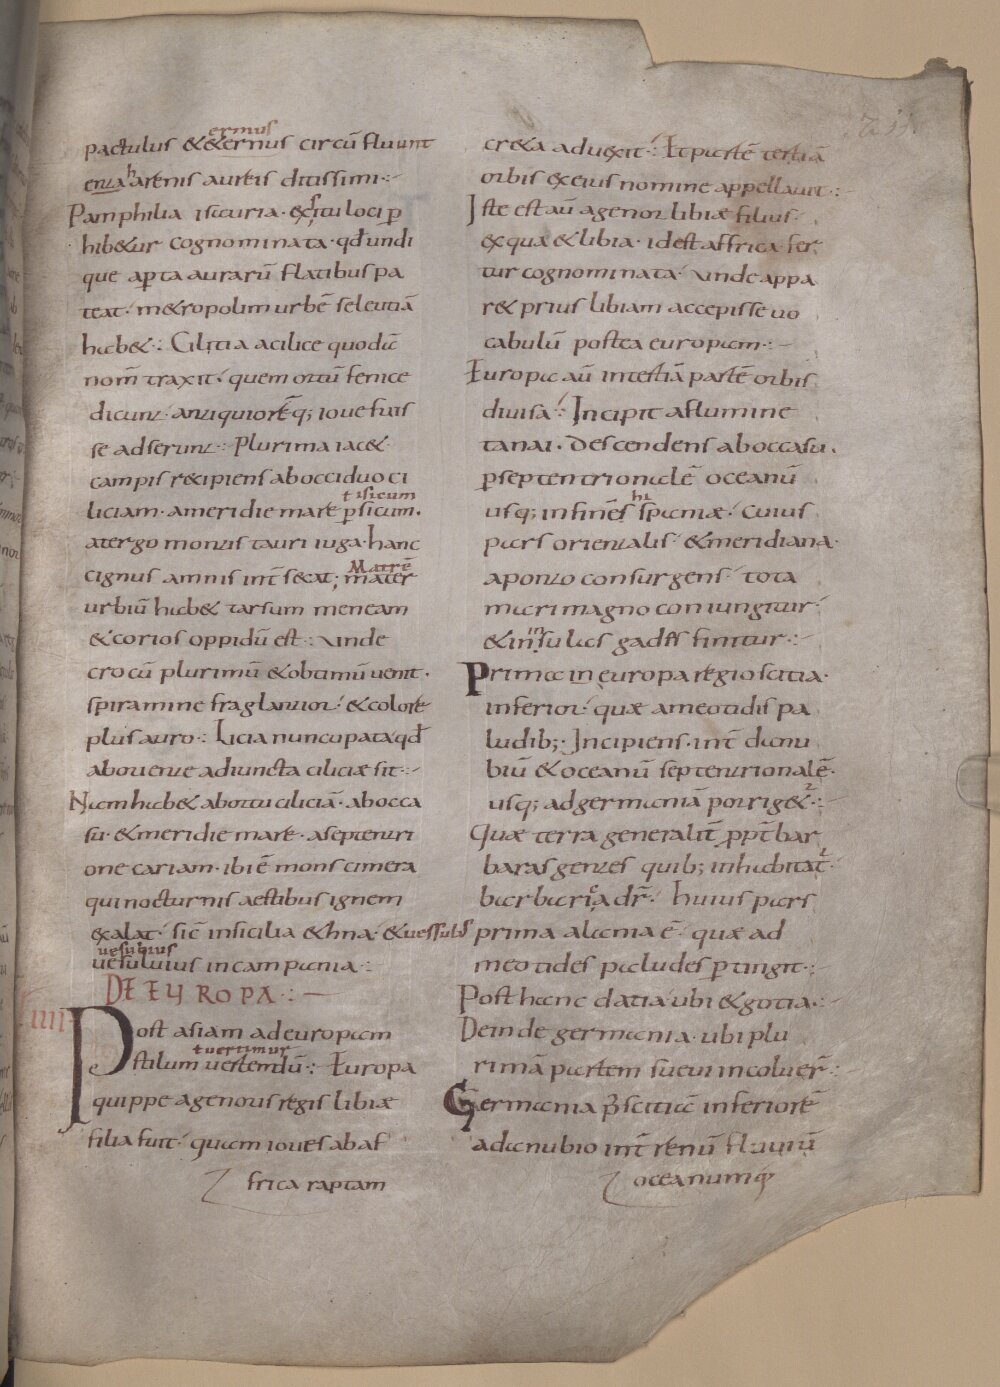 ermus
pactulus & & ernus circū fluunt
enza harenis aureis ditissimi·:-
Pamphilia isauria· ex situ loci p̄
hib&ur cognominata· qđ undi
que ap̄ta aurarū flatibus pa
teat· m&ropolim urbē seleutiā
hab&·: Cilitia a cilice quodā
nom̄ traxit· quem ortū fenice
dicunt· antiquiorēq; ioue fuis
se adserunt·: Plurima iac&·
campis recipiens abocciduo ci
tisicum
liciam· ameridie mare p̄sicum·
atergo montis tauri iuga· hanc
Matrē
cignus amnis int̄ secat; mater
urbiū hab& tarsum meneam
& corios oppidū est·: unde
crocū plurimū & obtimū uenit·
spiramine fraglantior· & colore
plus auro·: Licia nuncupata qđ
ab oriente adiuncta ciliciæ sit·:-
Nam hab& abortu ciliciā· abocca
su· & meridie mare· aseptentri
one cariam· ibi ē mons cimera
qui nocturnis aestibus ignem
exalat· sic̄ insicilia &hna· & uessubis
uesubius
uesuluius in campania·:
DE EUROPA·:—
IIII
Post asiam ad europam
tuertimur
stilum uertendū·: Europa
quippe agenoris regis libiæ
filia fuit· quam ioues abaf
frica raptam
cr&a aduexit·: Et partē tertiā
orbis ex eius nomine appellauit·:
Iste est aū agenor libiæ filius
ex qua & libia· idest affrica fer
tur cognominata· unde appa
r& prius libiam accepisse uo
cabulū postea europam·:-
Europa aū intertiā partē orbis
diuisa·: Incipit aflumine
tanai· descendens aboccasu·
p septentrionalē oceanū
hi
usq; infinēs spaniæ· Cuius
pars orientalis & meridiana·
aponto consurgens· tota
mari magno coniungitur·
& in insulas gades finitur·:
Prima in europa regio scitia·
inferior· quæ ameotidis pa
ludib;· Incipiens· int̄ danu
biū & oceanū septentrionalē·
usq; ad germaniā porrig&·:
Quæ terra generalit̄ ppt̄ bar
baras gentes quib; inhabitat̄·
barbarica dr̄· huius pars
prima alania ē· quæ ad
meotides paludes p̄tingit·:
Post hanc datia ubi & gotia·:
Deinde germania· ubi plu
rimā partem sueui incoluer̄·:
Germania p̄ scitiā inferiorē
adanubio int̄ renū fluuiū
oceanumq;